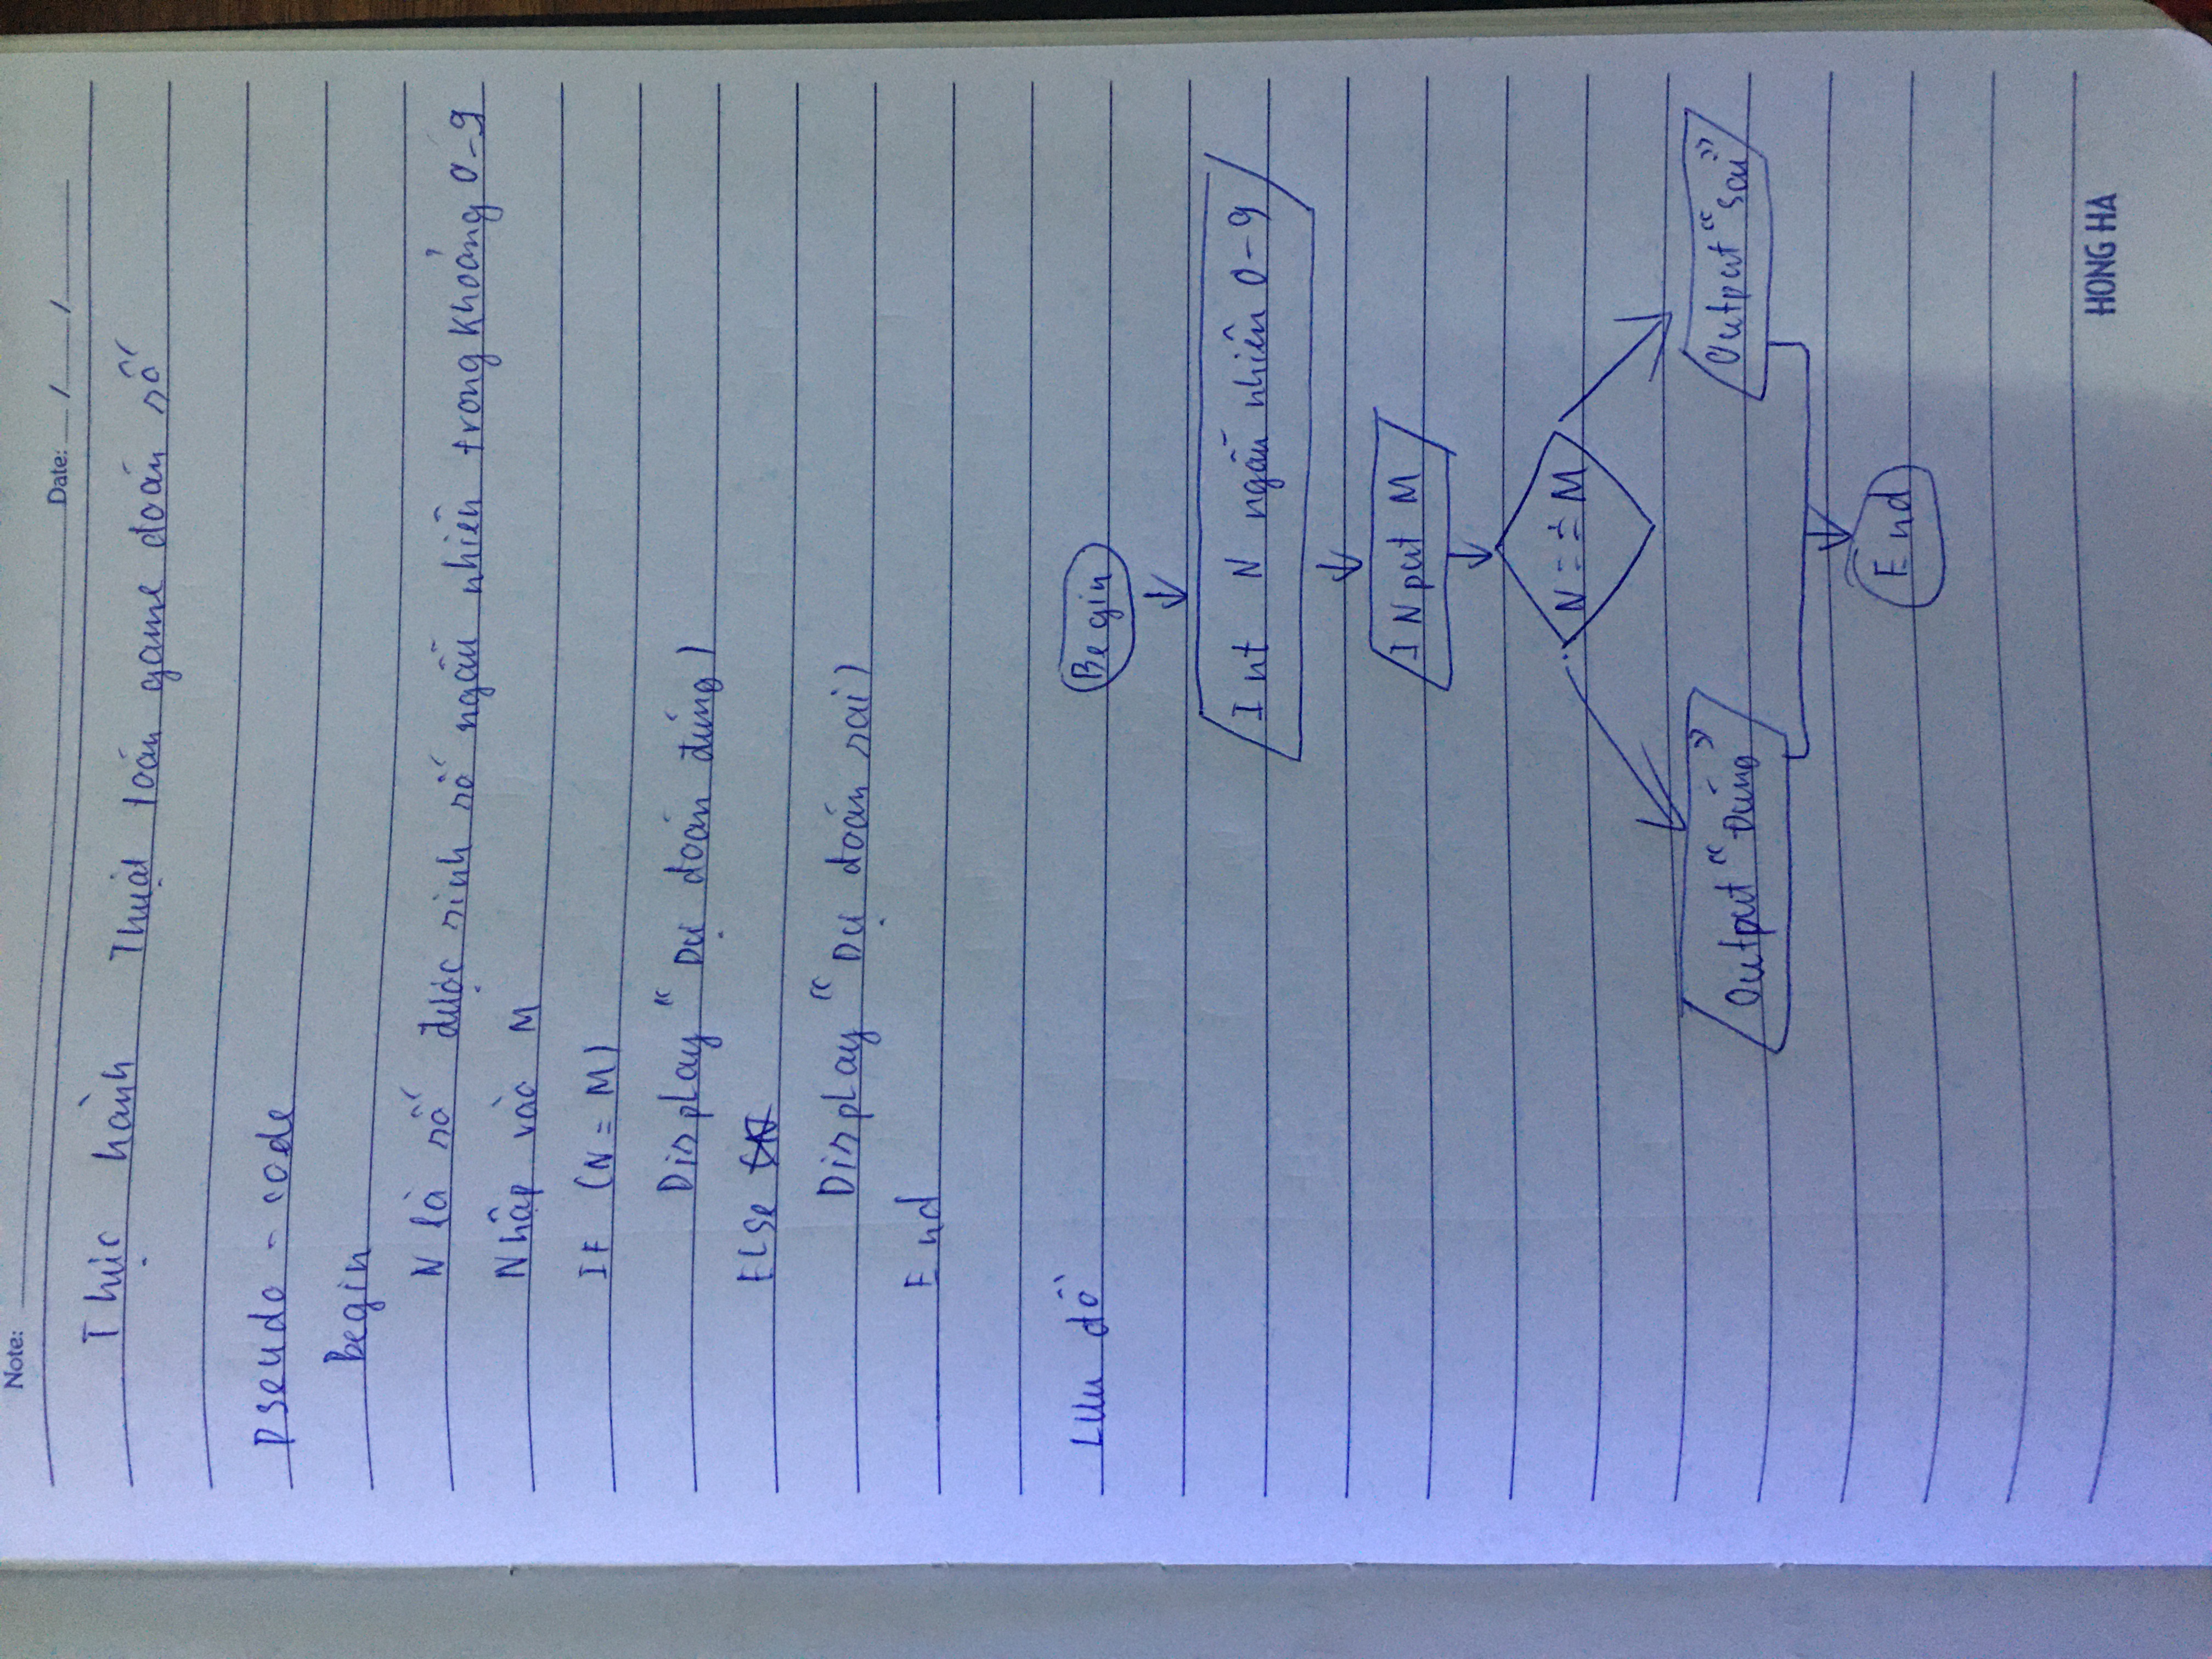 Note:
Date: / /
Thực hành Thuật toán game đoán số
Pseudo - code
Begin
N là số được sinh số ngẫu nhiên trong khoảng 0-9
Nhập vào M
IF (N = M)
Display " Dự đoán đúng)
Else
Display " Dự đoán sai)
End
Lưu đồ
Begin
Int N ngẫu nhiên 0-9
INput M
N = = M
Output "Đúng"
Output "Sai"
End
HONG HA